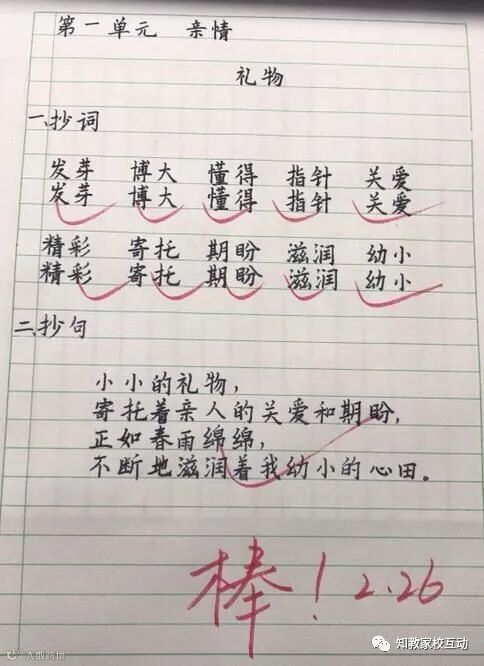 第一单元 亲情
礼物
一、抄词
发芽 博大 懂得 指针 关爱
发芽 博大 懂得 指针 关爱
精彩 寄托 期盼 滋润 幼小
精彩 寄托 期盼 滋润 幼小
二、抄句
小小的礼物，
寄托着亲人的关爱和期盼，
正如春雨绵绵，
不断地滋润着我幼小的心田。
棒！2.26
知教家校互动
大数跨境